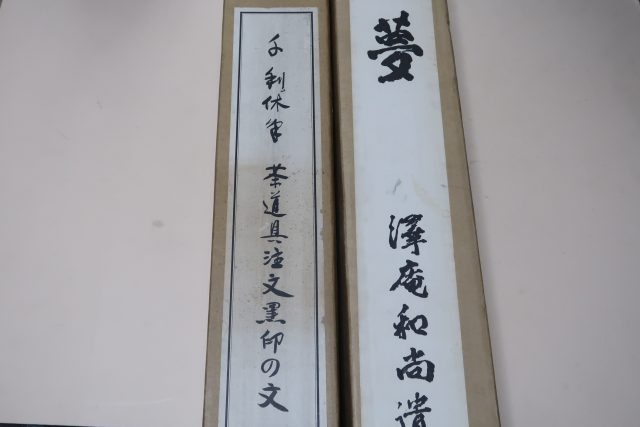 夢
澤庵和尚遺
千利休筆 茶道具注文黒印の文